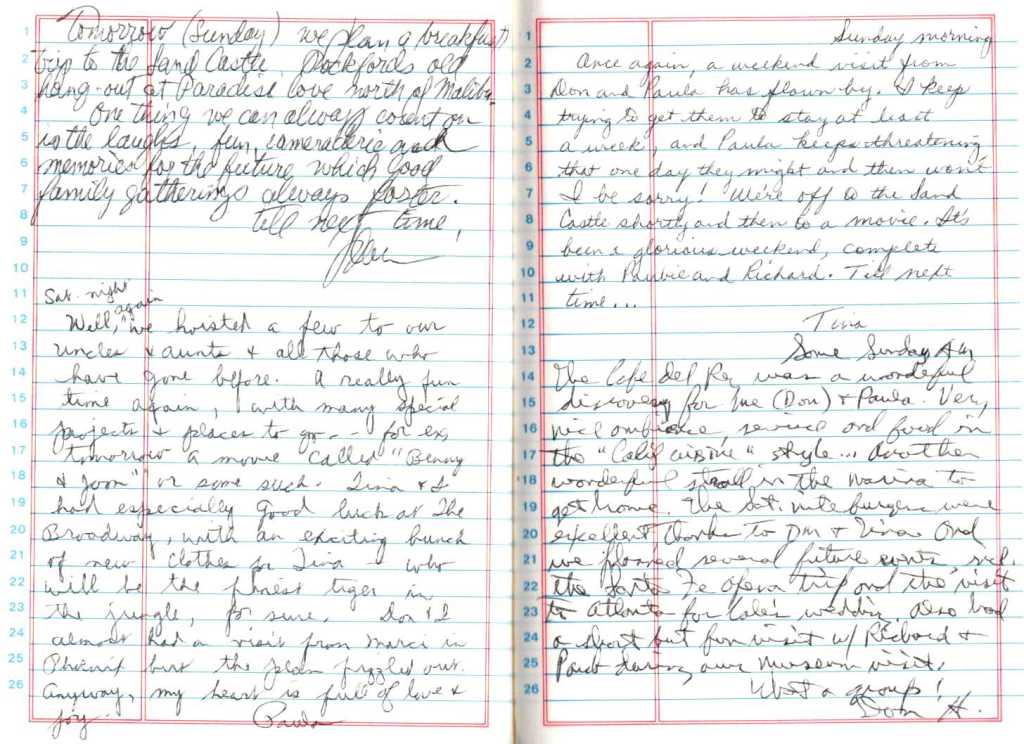 Tomorrow (Sunday) we plan a breakfast
trip to the Sand Castle, Rockfords old
hang-out at Paradise Cove north of Malibu.
One thing we can always count on
is the laughs, fun, cameraderie and
memories for the future which good
family gatherings always foster.
till next time,
Sat. night
again
Well, we hoisted a few to our
uncles & aunts & all those who
have gone before. A really fun
time again, with many special
projects & places to go -- for ex,
tomorrow a movie called "Benny
& Joon" or some such. Tina & I
had especially good luck at The
Broadway, with an exciting bunch
of new clothes for Tina - who
will be the finest tiger in
the jungle, for sure. Don & I
almost had a visit from Marci in
Phoenix but the plan fizzled out.
Anyway, my heart is full of love &
joy. Paula
Sunday morning
Once again, a weekend visit from
Don and Paula has flown by. I keep
trying to get them to stay at least
a week, and Paula keeps threatening
that one day they might and then won't
I be sorry! We're off to the Sand
Castle shortly and then to a movie. It's
been a glorious weekend, complete
with and Richard. Till next
time...
Tina
Some Sunday AM
The Cafe del Rey was a wonderful
discovery for me (Don) & Paula. Very
nice ambience, service and food in
the "Calif cuisine" style... Another
wonderful stroll in the Marina to
get home. The Sat. nite burgers were
excellent thanks to Jim & Tina. And
we planned several future events incl.
the Santa Fe Opera trip and the visit
to Atlanta for wedding. Also had
a short but fun visit w/ Richard &
Paul during our museum visit.
What a group!
Don H.